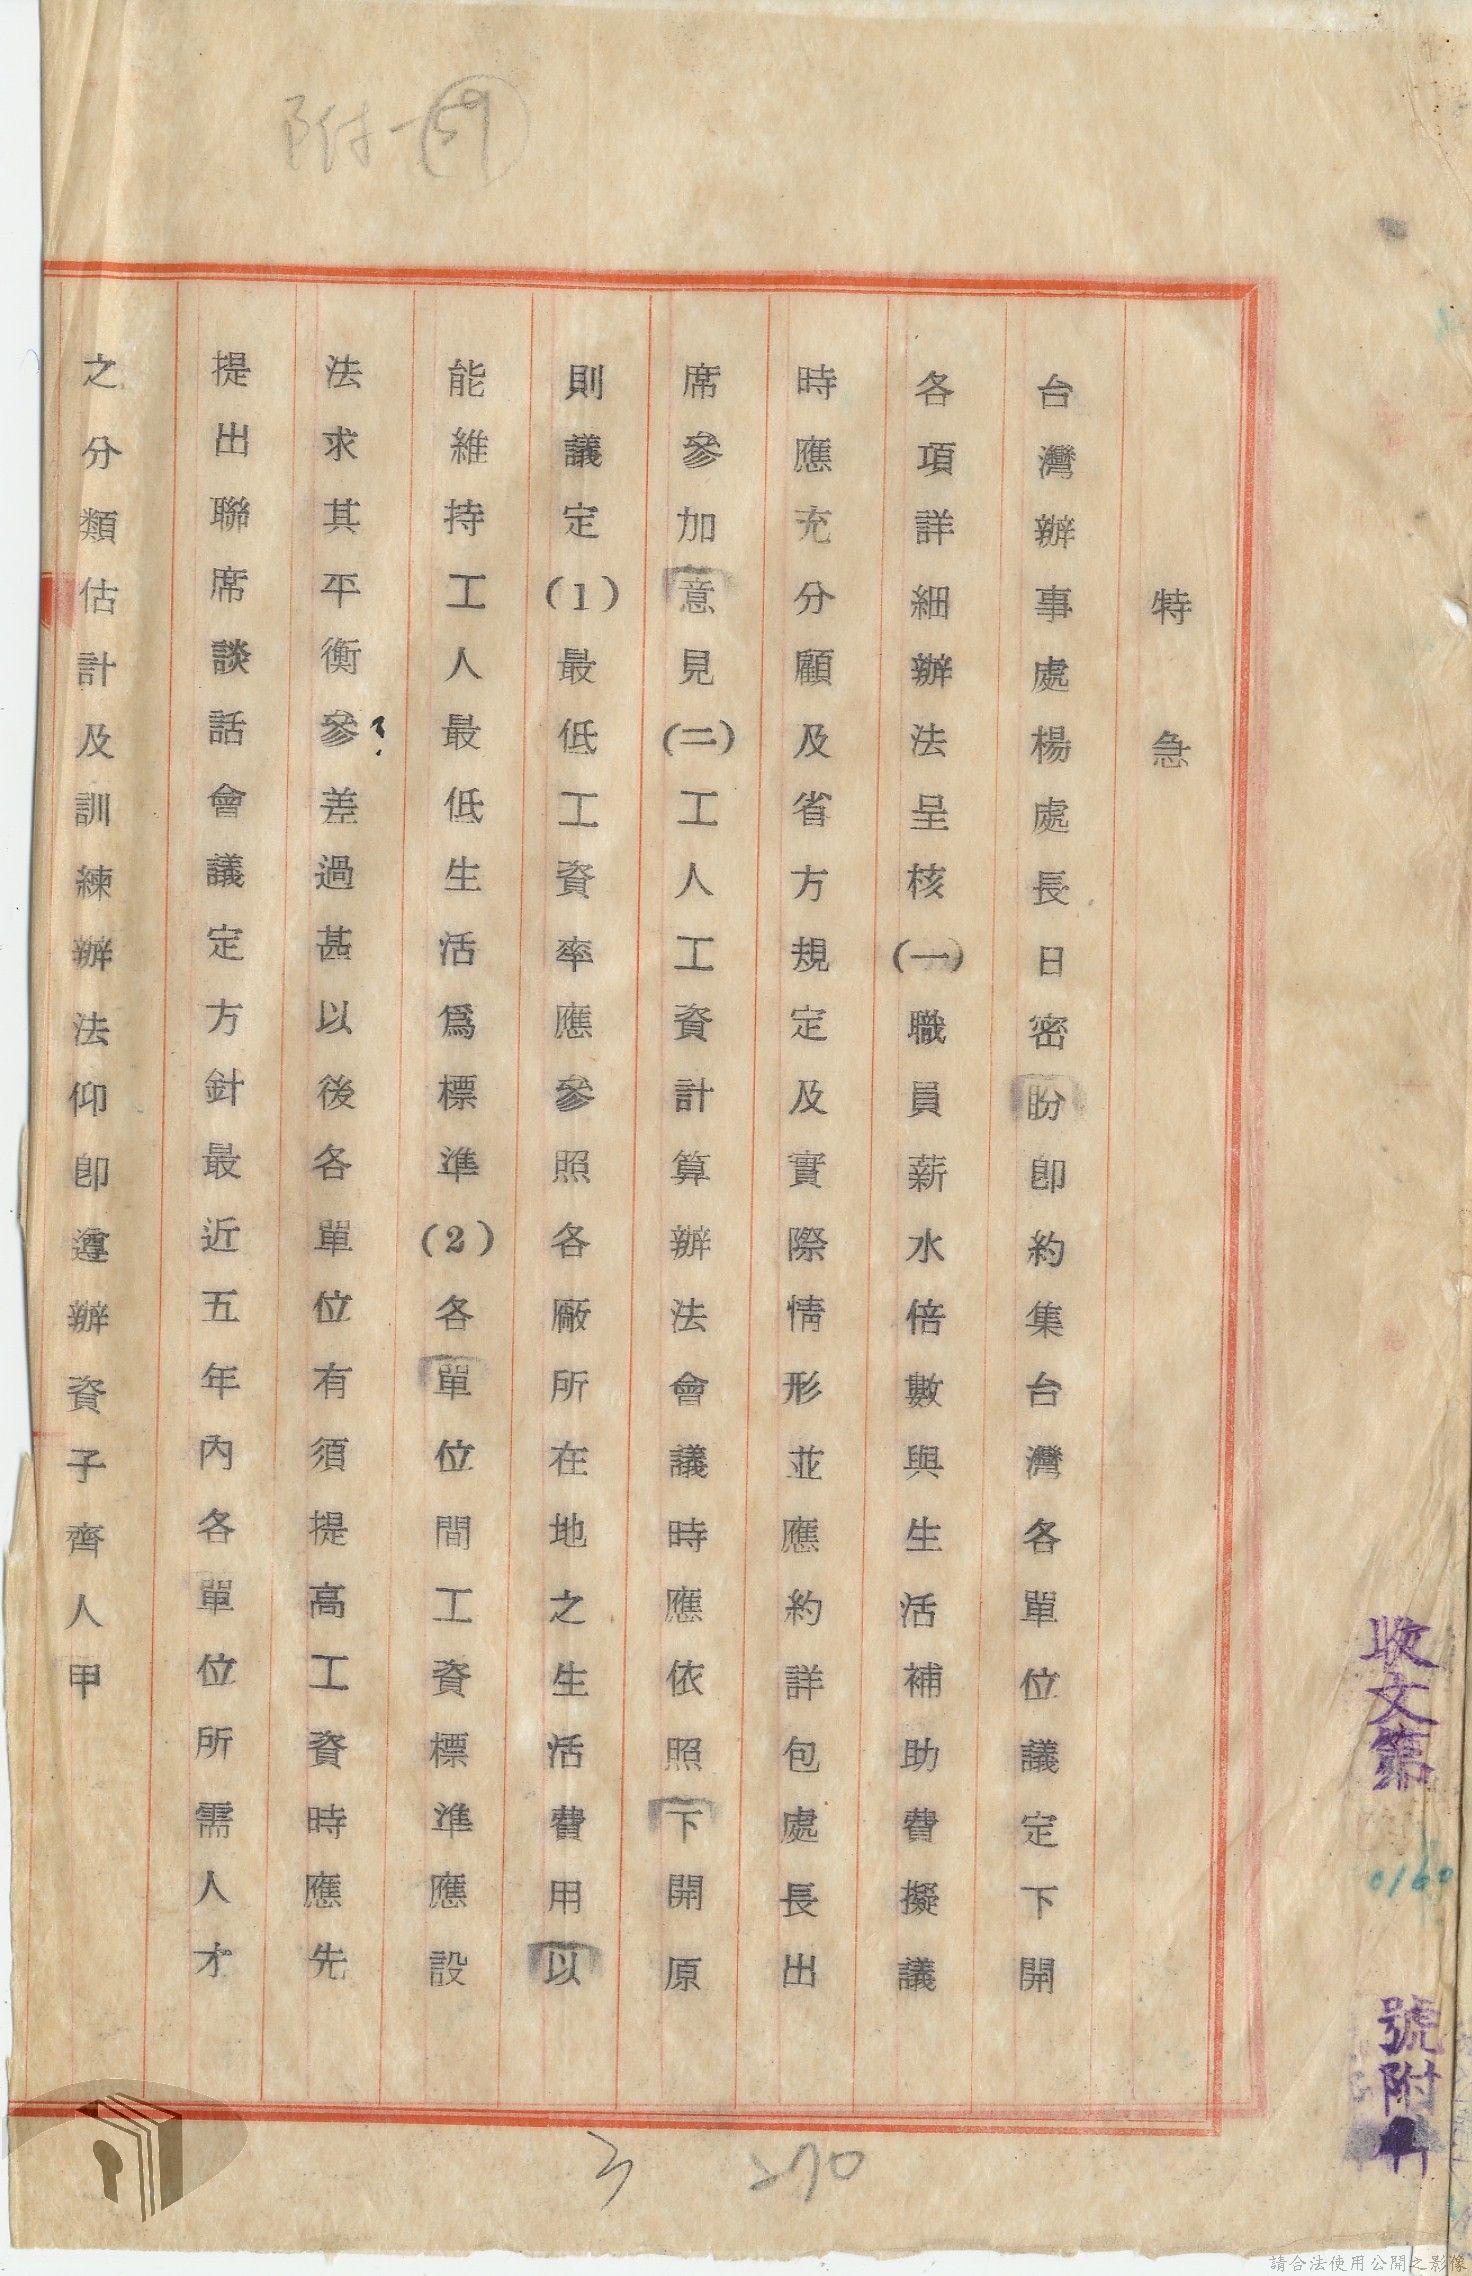 附一59
特急
台灣辦事處楊處長日密盼即約集台灣各單位議定下開
各項詳細辦法呈核(一)職員薪水倍數與生活補助費擬議
時應充分顧及省方規定及實際情形並應約詳包處長出
席參加意見(二)工人工資計算辦法會議時應依照下開原
則議定(1)最低工資率應參照各廠所在地之生活費用以
能維持工人最低生活為標準(2)各單位間工資標準應設
法求其平衡參差過甚以後各單位有須提高工資時應先
提出聯席談話會議定方針最近五年內各單位所需人才
之分類估計及訓練辦法仰即遵辦資子齊人甲
收文第 0160 號附件
3 270
請合法使用公開之影像